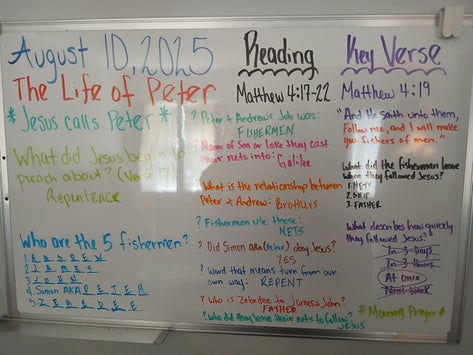 August 10, 2025
The Life of Peter
* Jesus calls Peter *
What did Jesus begin to
preach about? (Verse 17)
Repentence
Who are the 5 fishermen?
1. ANDREW
2. JAMES
3. JOHN
4. Simon AKA PETER
5. ZEBEDEE
Reading
Matthew 4:17-22
? Peter + Andrew's Job was:
FISHERMEN
? Name of Sea or Lake they cast
their nets into: Galilee
? What is the relationship between
Peter + Andrew: Brothers
? Fishermen use these:
NETS
? Did Simon aka (Peter) obey Jesus?
YES
? Word that means turn from our
own way: REPENT
? Who is Zebedee to James + John?
FATHER
? Who did they leave their nets to follow?
JESUS
Key Verse
Matthew 4:19
"And He saith unto them,
Follow me, and I will make
you fishers of men."
What did the fishermen leave
when they followed Jesus?
1. NETS
2. SHIP
3. FATHER
What describes how quickly
they followed Jesus?
In 3 Days
In 2 Hours
At Once
Next Week
* Morning Prayer *